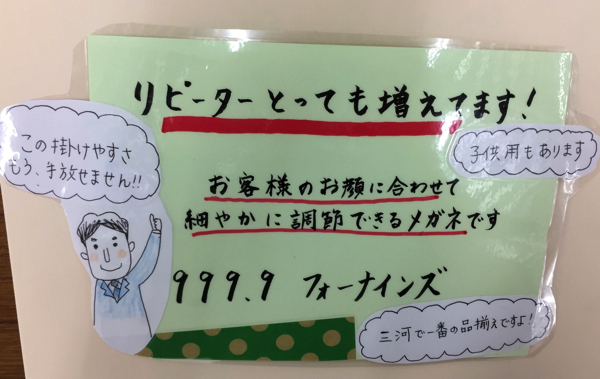 リピーターとっても増えてます!
この掛けやすさ
もう、手放せません!!
子供用もあります
お客様のお顔に合わせて
細やかに調節できるメガネです
999.9 フォーナインズ
三河で一番の品揃えですよ!